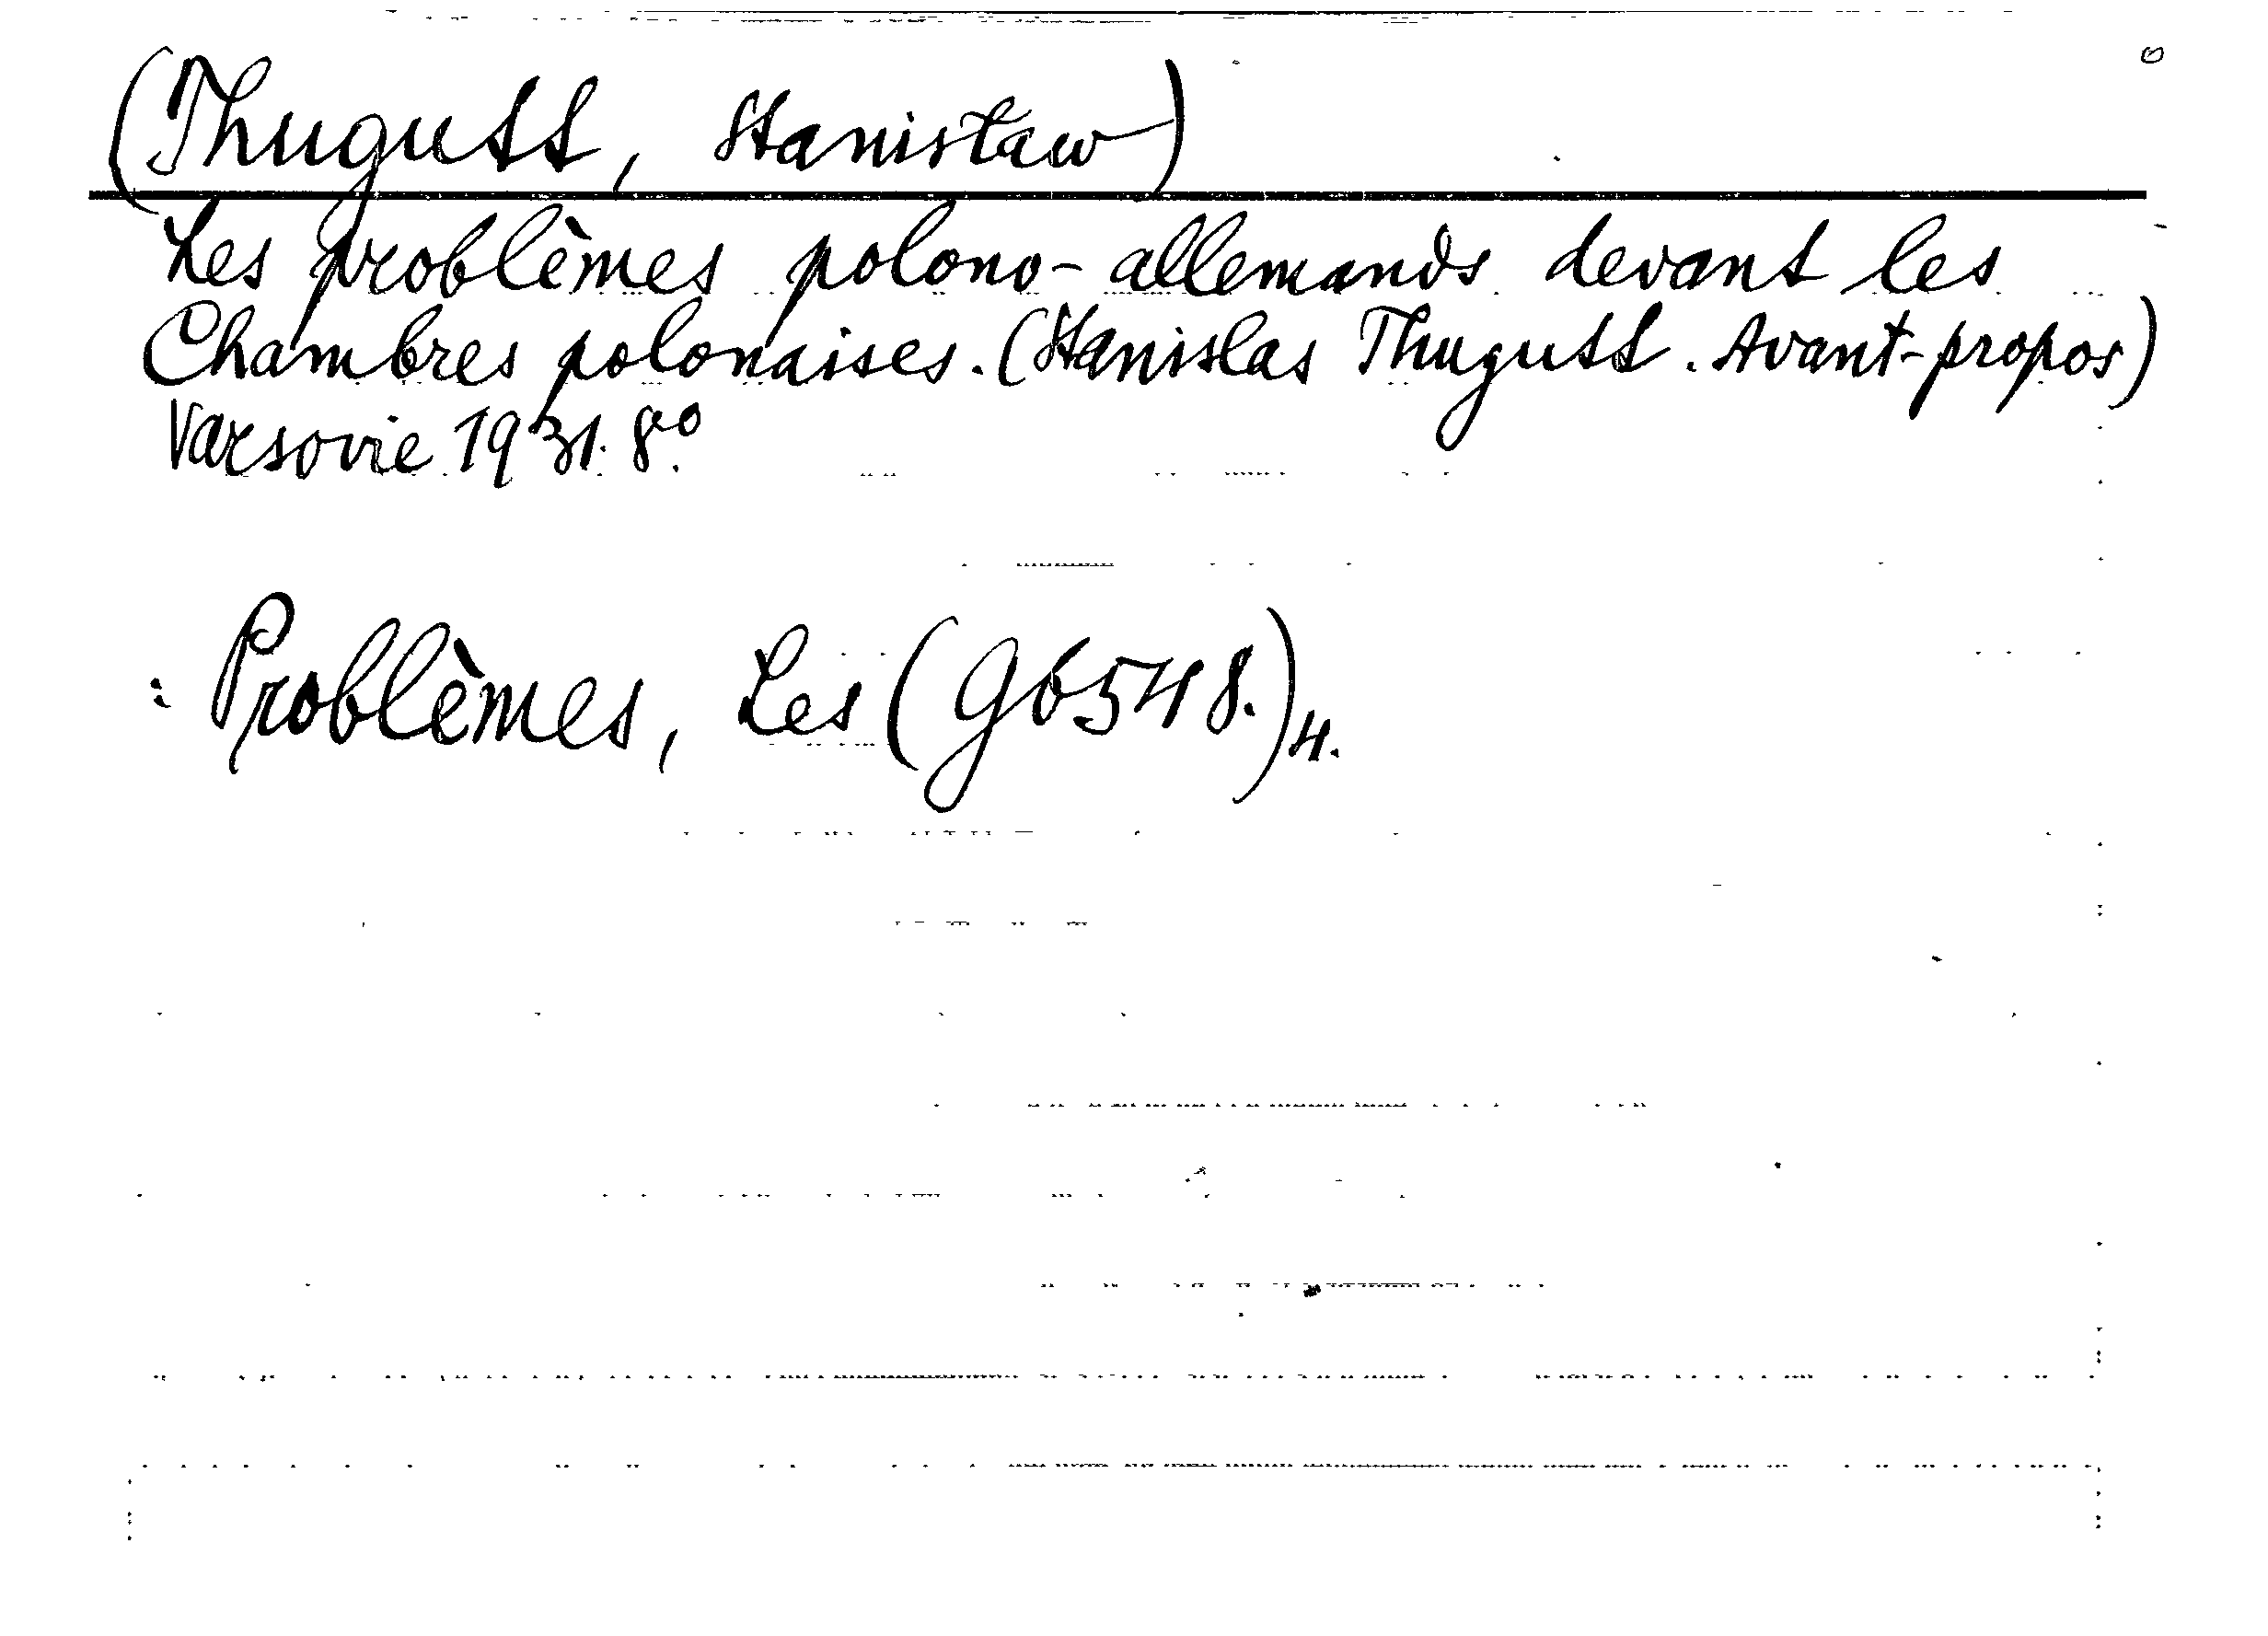 (Thugutt, Stanisław)
Les problèmes polono-allemands devant les
Chambres polonaises. (Stanislas Thugutt. Avant-propos)
Varsovie 1931. 8º.
: Problèmes, Les (g6548.)4.